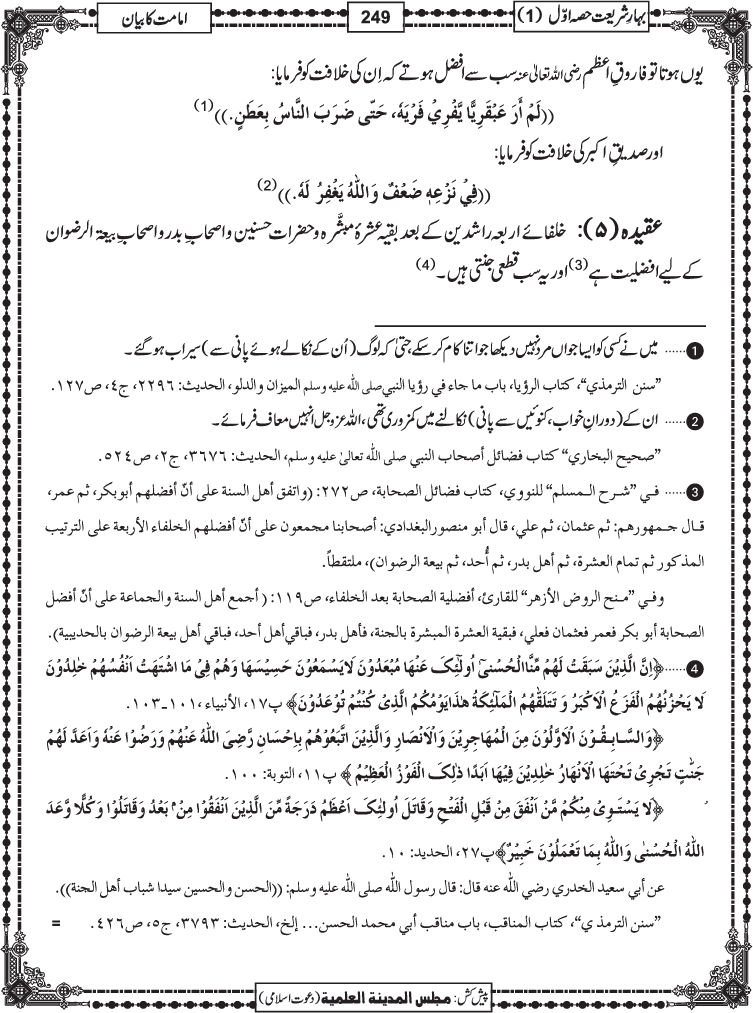 بہارِشریعت حصہ اوّل (1)
249
امامت کا بیان
یوں ہوتا تو فاروقِ اعظم رضی اللہ تعالیٰ عنہ سب سے افضل ہوتے کہ اِن کی خلافت کو فرمایا:
((لَمْ أَرَ عَبْقَرِيًّا يَّفْرِيْ فَرْيَهُ، حَتّٰی ضَرَبَ النَّاسُ بِعَطَنٍ.))(1)
اور صدیقِ اکبر کی خلافت کو فرمایا:
((فِيْ نَزْعِهٖ ضَعْفٌ وَاللّٰهُ يَغْفِرُ لَهٗ.))(2)
عقیدہ (۵): خلفائے اربعہ راشدین کے بعد بقیہ عشرۂ مبشَّرہ و حضرات حسنین و اصحابِ بدر و اصحابِ بیعۃ الرضوان
کے لیے افضلیت ہے(3) اور یہ سب قطعی جنتی ہیں۔(4)
1 ...... میں نے کسی کو ایسا جواں مرد نہیں دیکھا جو اتنا کام کر سکے، حتیٰ کہ لوگ (اُن کے نکالے ہوئے پانی سے) سیراب ہو گئے۔
”سنن الترمذي“، کتاب الرؤیا، باب ما جاء في رؤیا النبي صلی اللہ علیہ وسلم المیزان والدلو، الحدیث: ۲۲۹٦، ج٤، ص۱۲۷.
2 ...... ان کے (دورانِ خواب، کنوئیں سے پانی) نکالنے میں کمزوری تھی، اللہ عزوجل انہیں معاف فرمائے۔
”صحیح البخاري“ کتاب فضائل أصحاب النبي صلی اللہ تعالیٰ علیہ وسلم، الحدیث: ۳٦۷٦، ج۲، ص٥۲٤.
3 ...... في ”شرح المسلم“ للنووي، کتاب فضائل الصحابة، ص۲۷۲: (واتفق أهل السنة علی أنّ أفضلهم أبوبکر، ثم عمر،
قال جمهورهم: ثم عثمان، ثم علي، قال أبو منصورالبغدادي: أصحابنا مجمعون علی أنّ أفضلهم الخلفاء الأربعة علی الترتیب
المذکور ثم تمام العشرة، ثم أهل بدر، ثم أُحد، ثم بیعة الرضوان)، ملتقطاً.
وفي ”منح الروض الأزهر“ للقارئ، أفضلیة الصحابة بعد الخلفاء، ص۱۱۹: (أجمع أهل السنة والجماعة علی أنّ أفضل
الصحابة أبو بکر فعمر فعثمان فعلي، فبقیة العشرة المبشرة بالجنة، فأهل بدر، فباقي أهل أحد، فباقي أهل بیعة الرضوان بالحدیبیة).
4 ...... ﴿اِنَّ الَّذِیْنَ سَبَقَتْ لَهُمْ مِّنَّا الْحُسْنٰۤی اُولٰٓئِکَ عَنْهَا مُبْعَدُوْنَ لَا یَسْمَعُوْنَ حَسِیْسَهَا وَهُمْ فِیْ مَا اشْتَهَتْ اَنْفُسُهُمْ خٰلِدُوْنَ
لَا یَحْزُنُهُمُ الْفَزَعُ الْاَکْبَرُ وَ تَتَلَقّٰهُمُ الْمَلٰٓئِکَةُ هٰذَا یَوْمُکُمُ الَّذِیْ کُنْتُمْ تُوْعَدُوْنَ﴾ پ۱۷، الأنبیاء ،۱۰۱ـ۱۰۳.
﴿وَالسّٰبِقُوْنَ الْاَوَّلُوْنَ مِنَ الْمُهَاجِرِیْنَ وَالْاَنْصَارِ وَالَّذِیْنَ اتَّبَعُوْهُمْ بِاِحْسَانٍ رَّضِیَ اللّٰهُ عَنْهُمْ وَرَضُوْا عَنْهُ وَاَعَدَّ لَهُمْ
جَنّٰتٍ تَجْرِیْ تَحْتَهَا الْاَنْهٰرُ خٰلِدِیْنَ فِیْهَا اَبَدًا ذٰلِکَ الْفَوْزُ الْعَظِیْمُ﴾ پ۱۱، التوبة: ۱۰۰.
﴿لَا یَسْتَوِیْ مِنْکُمْ مَّنْ اَنْفَقَ مِنْ قَبْلِ الْفَتْحِ وَقَاتَلَ اُولٰٓئِکَ اَعْظَمُ دَرَجَةً مِّنَ الَّذِیْنَ اَنْفَقُوْا مِنْۢ بَعْدُ وَقَاتَلُوْا وَکُلًّا وَّعَدَ
اللّٰهُ الْحُسْنٰی وَاللّٰهُ بِمَا تَعْمَلُوْنَ خَبِیْرٌ﴾ پ۲۷، الحدید: ۱۰.
عن أبي سعید الخدري رضي اللہ عنه قال: قال رسول اللہ صلی اللہ علیه وسلم: ((الحسن والحسین سیدا شباب أهل الجنة)).
”سنن الترمذي“، کتاب المناقب، باب مناقب أبي محمد الحسن... إلخ، الحدیث: ۳۷۹۳، ج٥، ص٤۲٦. =
پیش کش: مجلس المدینة العلمیة (دعوت اسلامی)